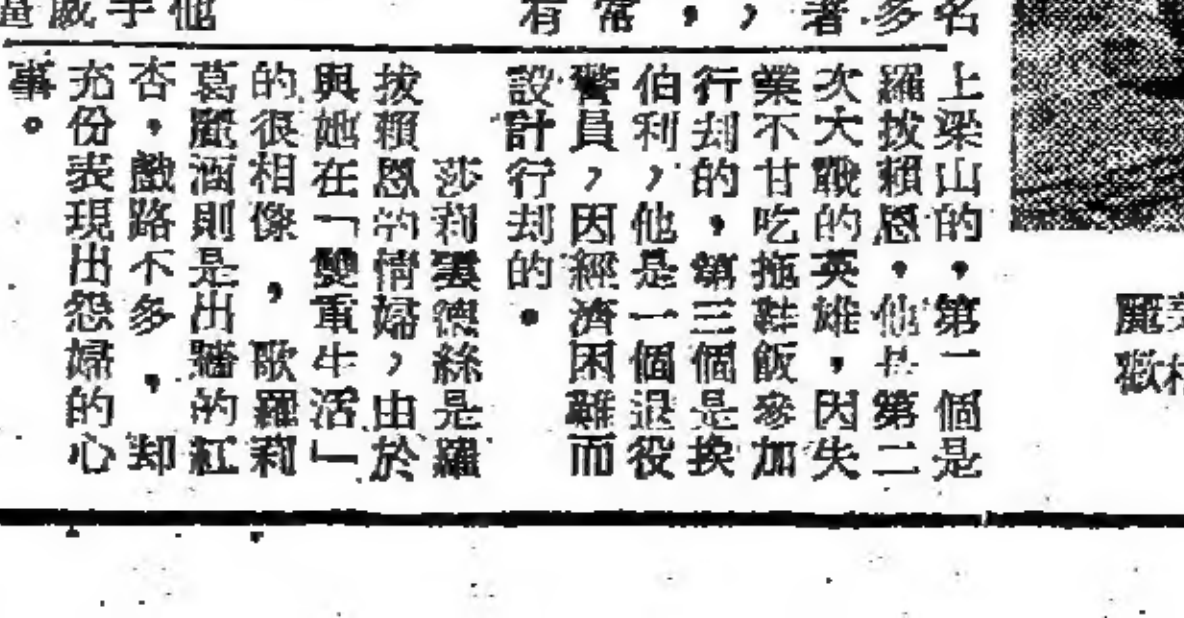 名
多
著
，
，
常
有
他
手
威
上梁山的，第一個是
羅拔賴恩，他是第二
次大戰的英雄，因失
業不甘吃拖鞋飯參加
行刦的，第三個是挨
伯利，他是一個退役
警員，因經濟困難而
設計行刦的。
莎莉雲德絲是羅
拔賴恩的情婦，由於
與她在「雙重生活」
的很相像，歌羅莉
葛麗涵則是出牆的紅
杏，戲路不多，却
充份表現出怨婦的心
事。